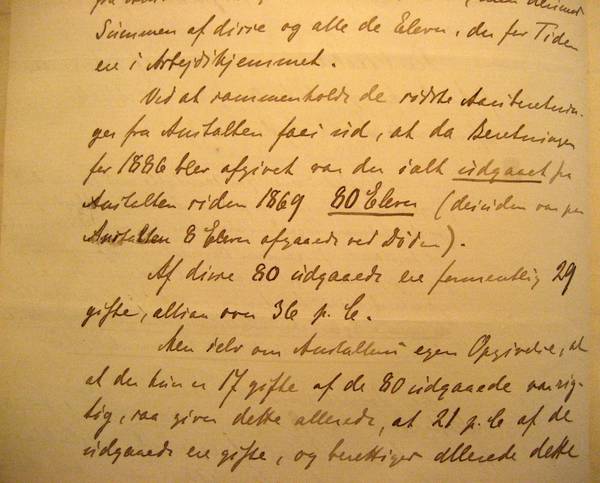 Summen af disse og alle de Elever, der for Tiden
ere i Arbejdshjemmet.
Ved at sammenholde de sidste Aarsberetnin-
ger fra Anstalten faaes ud, at da Beretningen
for 1886 blev afgivet var der ialt udgaaet fra
Anstalten siden 1869 80 Elever (desuden var paa
Anstalten 8 Elever afgaaede ved Døden).
Af disse 80 udgaaede ere formentlig 29
gifte, altsaa over 36 p. C.
Men selv om Anstaltens egen Opgivelse, at
at der kun er 17 gifte af de 80 udgaaede var rig-
tig, saa giver dette allerede, at 21 p. C af de
udgaaede ere gifte, og berettiger allerede dette